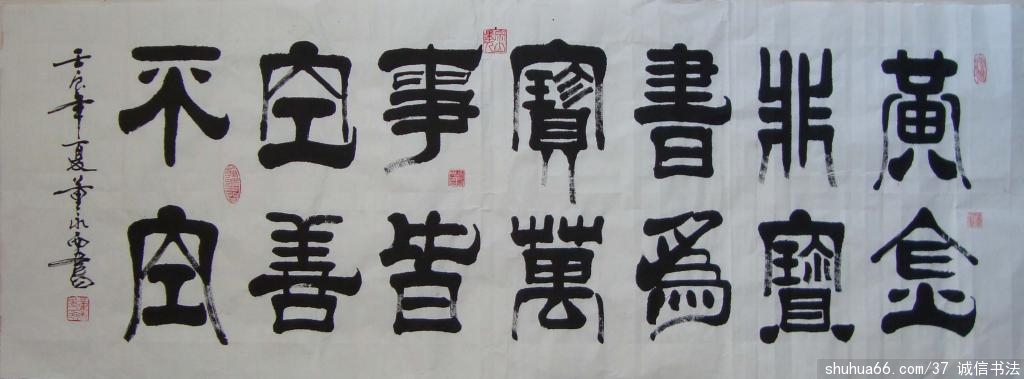 黃金
非寶
書爲
寶萬
事皆
空善
不空
壬辰年夏董永書
shuhua66.com/37 诚信书法